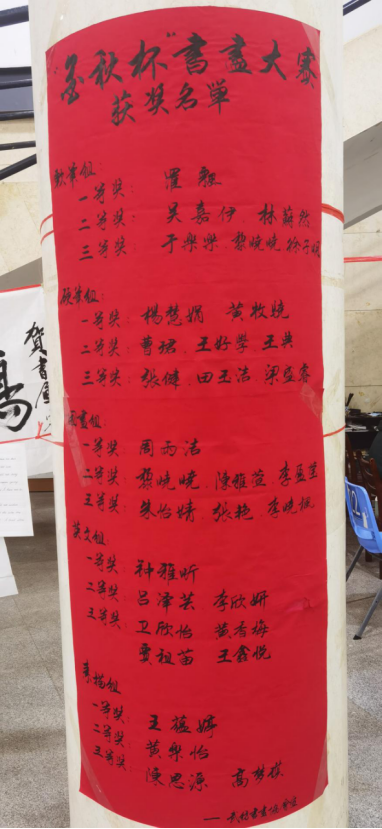 金秋杯书畫大赛
获奖名单
软筆组:
一等奖:
二等奖: 吴嘉伊 林蔚然
三等奖: 于樂樂 黎晓晓
硬筆组:
一等奖: 楊慧娟 黄牧晓
二等奖: 曹珺 王好学 王典
三等奖: 张健 田玉洁 梁盛睿
国畫组:
一等奖: 周雨洁
二等奖: 黎晓晓 陳雅萱 李盈莹
三等奖: 朱怡婧 张艳 李晓枫
英文组:
一等奖: 钟雅昕
二等奖: 吕泽芸 李欣妍
三等奖: 卫欣怡 黄香梅
贾祖苗 王鑫悦
素描组
一等奖: 王蕴婷
二等奖: 黄樂怡
三等奖: 陳思源 高梦祺
贺書国